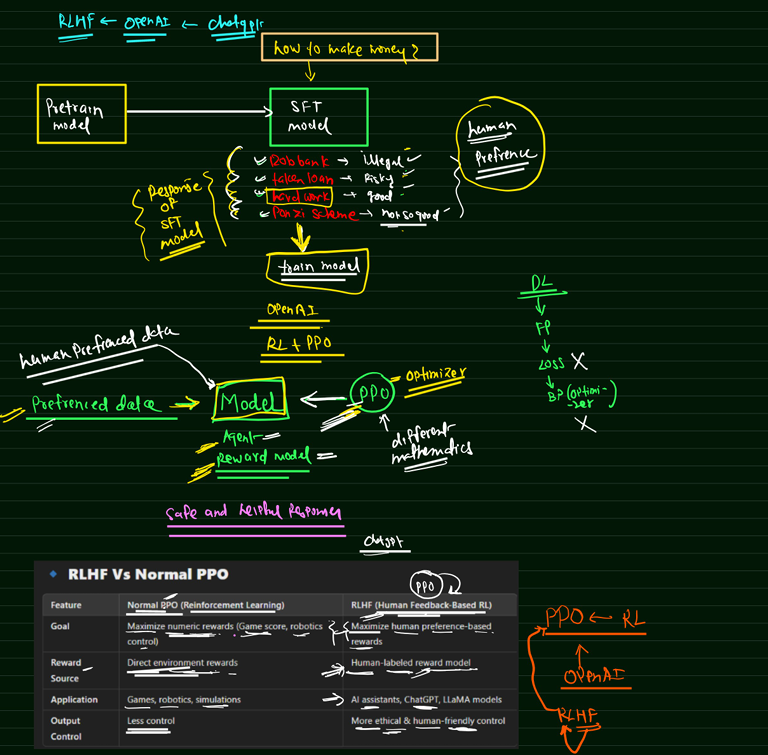 RLHF ← OPENAI ← chatgpt
how to make money?
Pretrain
model
SFT
model
human
prefrence
Rob bank → illegal
taken loan → Risky
hard work → good
Ponzi scheme → not so good
Response
OP
SFT
model
train model
OPENAI
RL + PPO
DL
FP
LOSS X
BP (optimi-
zer)
X
human Prefrenced data
Prefrenced data →
Model
PPO
optimizer
different
mathematics
Agent
Reward model
Safe and helpful Responses
chatgpt
RLHF Vs Normal PPO
PPO
Feature Normal PPO (Reinforcement Learning) RLHF (Human Feedback-Based RL)
Goal Maximize numeric rewards (Game score, robotics control) Maximize human preference-based rewards
Reward Source Direct environment rewards Human-labeled reward model
Application Games, robotics, simulations AI assistants, ChatGPT, LLaMA models
Output Control Less control More ethical & human-friendly control
PPO ← RL
OPENAI
RLHF